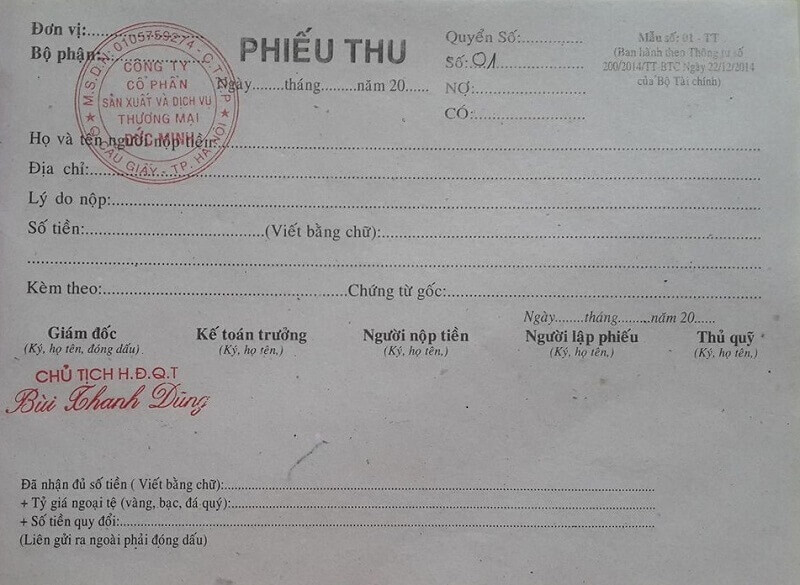 Đơn vị:
Bộ phận:
M.S.D.N: 0105759274 - C.T.C.P
CÔNG TY
CỔ PHẦN
SẢN XUẤT VÀ DỊCH VỤ
THƯƠNG MẠI
ĐỨC MINH
Q. CẦU GIẤY - TP. HÀ NỘI
PHIẾU THU
Ngày........tháng.........năm 20......
Quyển Số:
Số: 01
NỢ:
CÓ:
Mẫu số: 01 - TT
(Ban hành theo Thông tư số
200/2014/TT-BTC Ngày 22/12/2014
của Bộ Tài chính)
Họ và tên người nộp tiền:
Địa chỉ:
Lý do nộp:
Số tiền:....................(Viết bằng chữ):
Kèm theo:....................Chứng từ gốc:
Ngày........tháng.........năm 20......
Giám đốc Kế toán trưởng Người nộp tiền Người lập phiếu Thủ quỹ
(Ký, họ tên, đóng dấu) (Ký, họ tên,) (Ký, họ tên,) (Ký, họ tên,) (Ký, họ tên,)
CHỦ TỊCH H.Đ.Q.T
Bùi Thanh Dũng
Đã nhận đủ số tiền ( Viết bằng chữ):
+ Tỷ giá ngoại tệ (vàng, bạc, đá quý):
+ Số tiền quy đổi:
(Liên gửi ra ngoài phải đóng dấu)